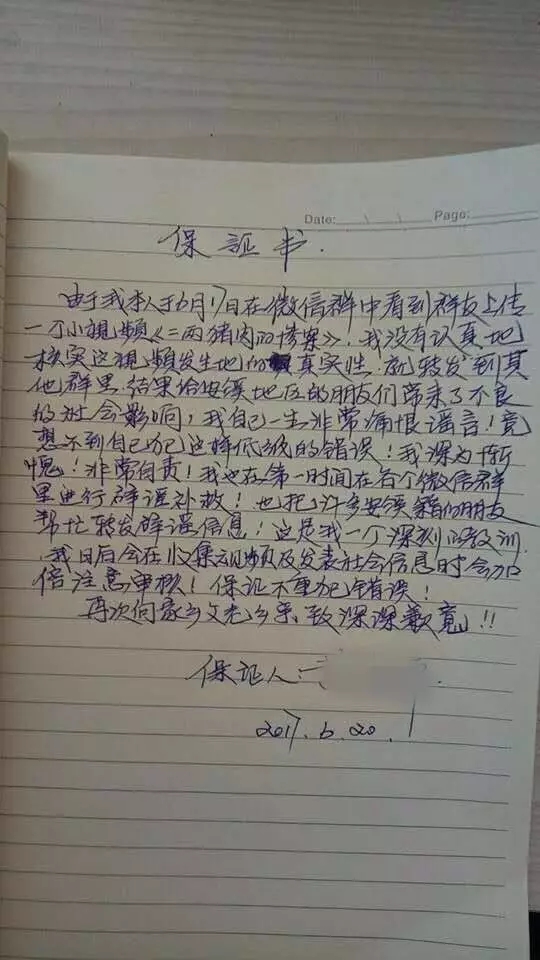 Date: \ \ Page:
保证书.
由于我本人于6月17日在微信群中看到群友上传
一个小視頻《二两猪肉的惨案》，我没有认真地
核实这視頻发生地的真实性 就转发到其
他群里 结果给安溪地区的朋友们带来了不良
的社会影响，我自己一生非常痛恨谣言！竟
想不到自己犯这样低级的错误！我深为惭
愧！非常自责！我也在第一时间在各个微信群
里进行辟谣补救！也把许多安溪籍的朋友
帮忙转发辟谣信息！这是我一个深刻的教训
我日后会在收集視頻及发表社会信息时会加
倍注意审核！保证不重犯错误！
再次向家乡父老乡亲致深深歉意!!
保证人:
2017.6.20.